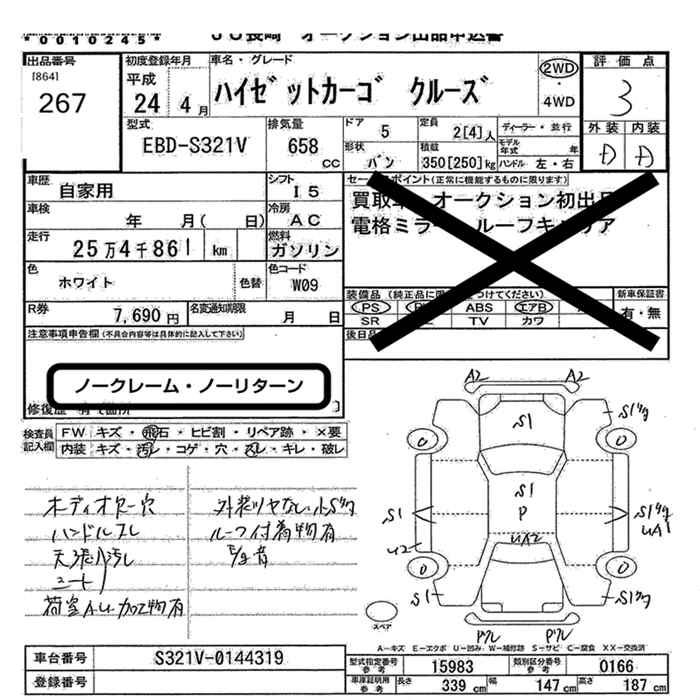 *0010245*
JU長崎 オークション出品申込書
出品番号
[864]
267
初度登録年月
平成
24年4月
車名・グレード
ハイゼットカーゴ クルーズ
2WD
・
4WD
評価点
3
型式
EBD-S321V
排気量
658
CC
ドア
5
定員
2[4]人
ディーラー・並行
形状
バン
積載
350[250]kg
モデル年式 年
ハンドル 左・右
外装 内装
車歴
自家用
シフト
I5
セールスポイント(正常に機能するものに限ります)
車検
年 月( 日)
冷房
AC
買取車 オークション初出品
電格ミラー ルーフキャリア
走行
25万4千861 km
燃料
ガソリン
色
ホワイト
色替
色コード
W09
装備品
新車保証書
PS
ABS
エアB
SR
TV
カワ
有・無
R券
7,690円
名変通知期限
月 日
後日品
注意事項申告欄(不具合内容等は具体的に記入して下さい)
ノークレーム・ノーリターン
修復歴
検査員記入欄
FW キズ・飛石・ヒビ割・リペア跡・×要
内装 キズ・汚レ・コゲ・穴・スレ・キレ・破レ
オーディオカー穴
ハンドルスレ
天張り汚レ
シート〃
荷室A・U・加工物有
外装ツヤなし・小Sサg
ルーフ付着物有
A2 A2
S1
S1サg
0 0
S1
P
S1
S1サg
UA1
U2
UA2
0 0
S1
S1サg
スペア
A-キズ E-エクボ U-凹み W-補修跡 S-サビ C-腐食 XX-交換済
車台番号
S321V-0144319
登録番号
型式指定番号 参考
15983
類別区分番号 参考
0166
車庫証明用 参考
長さ 339cm 幅 147cm 高さ 187cm